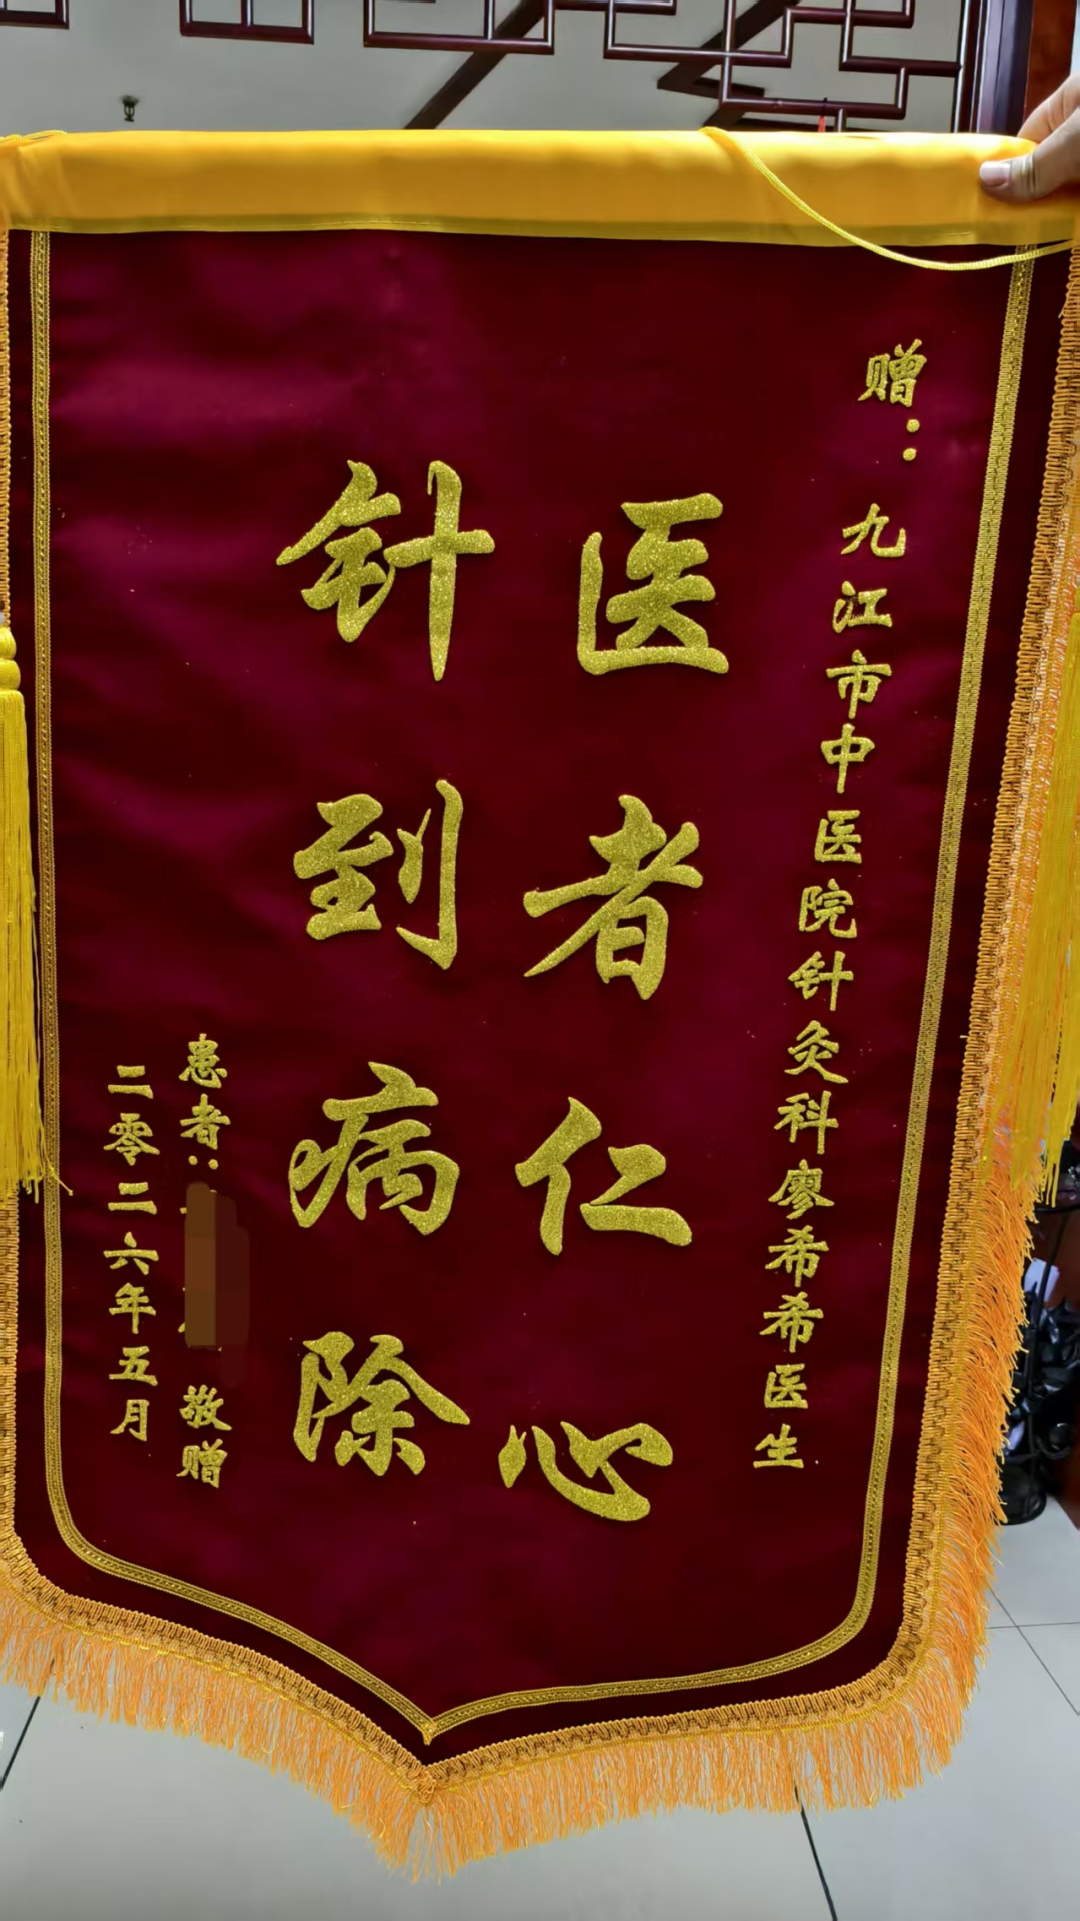 赠：九江市中医院针灸科廖希希医生
医者仁心
针到病除
患者：敬赠
二零二六年五月